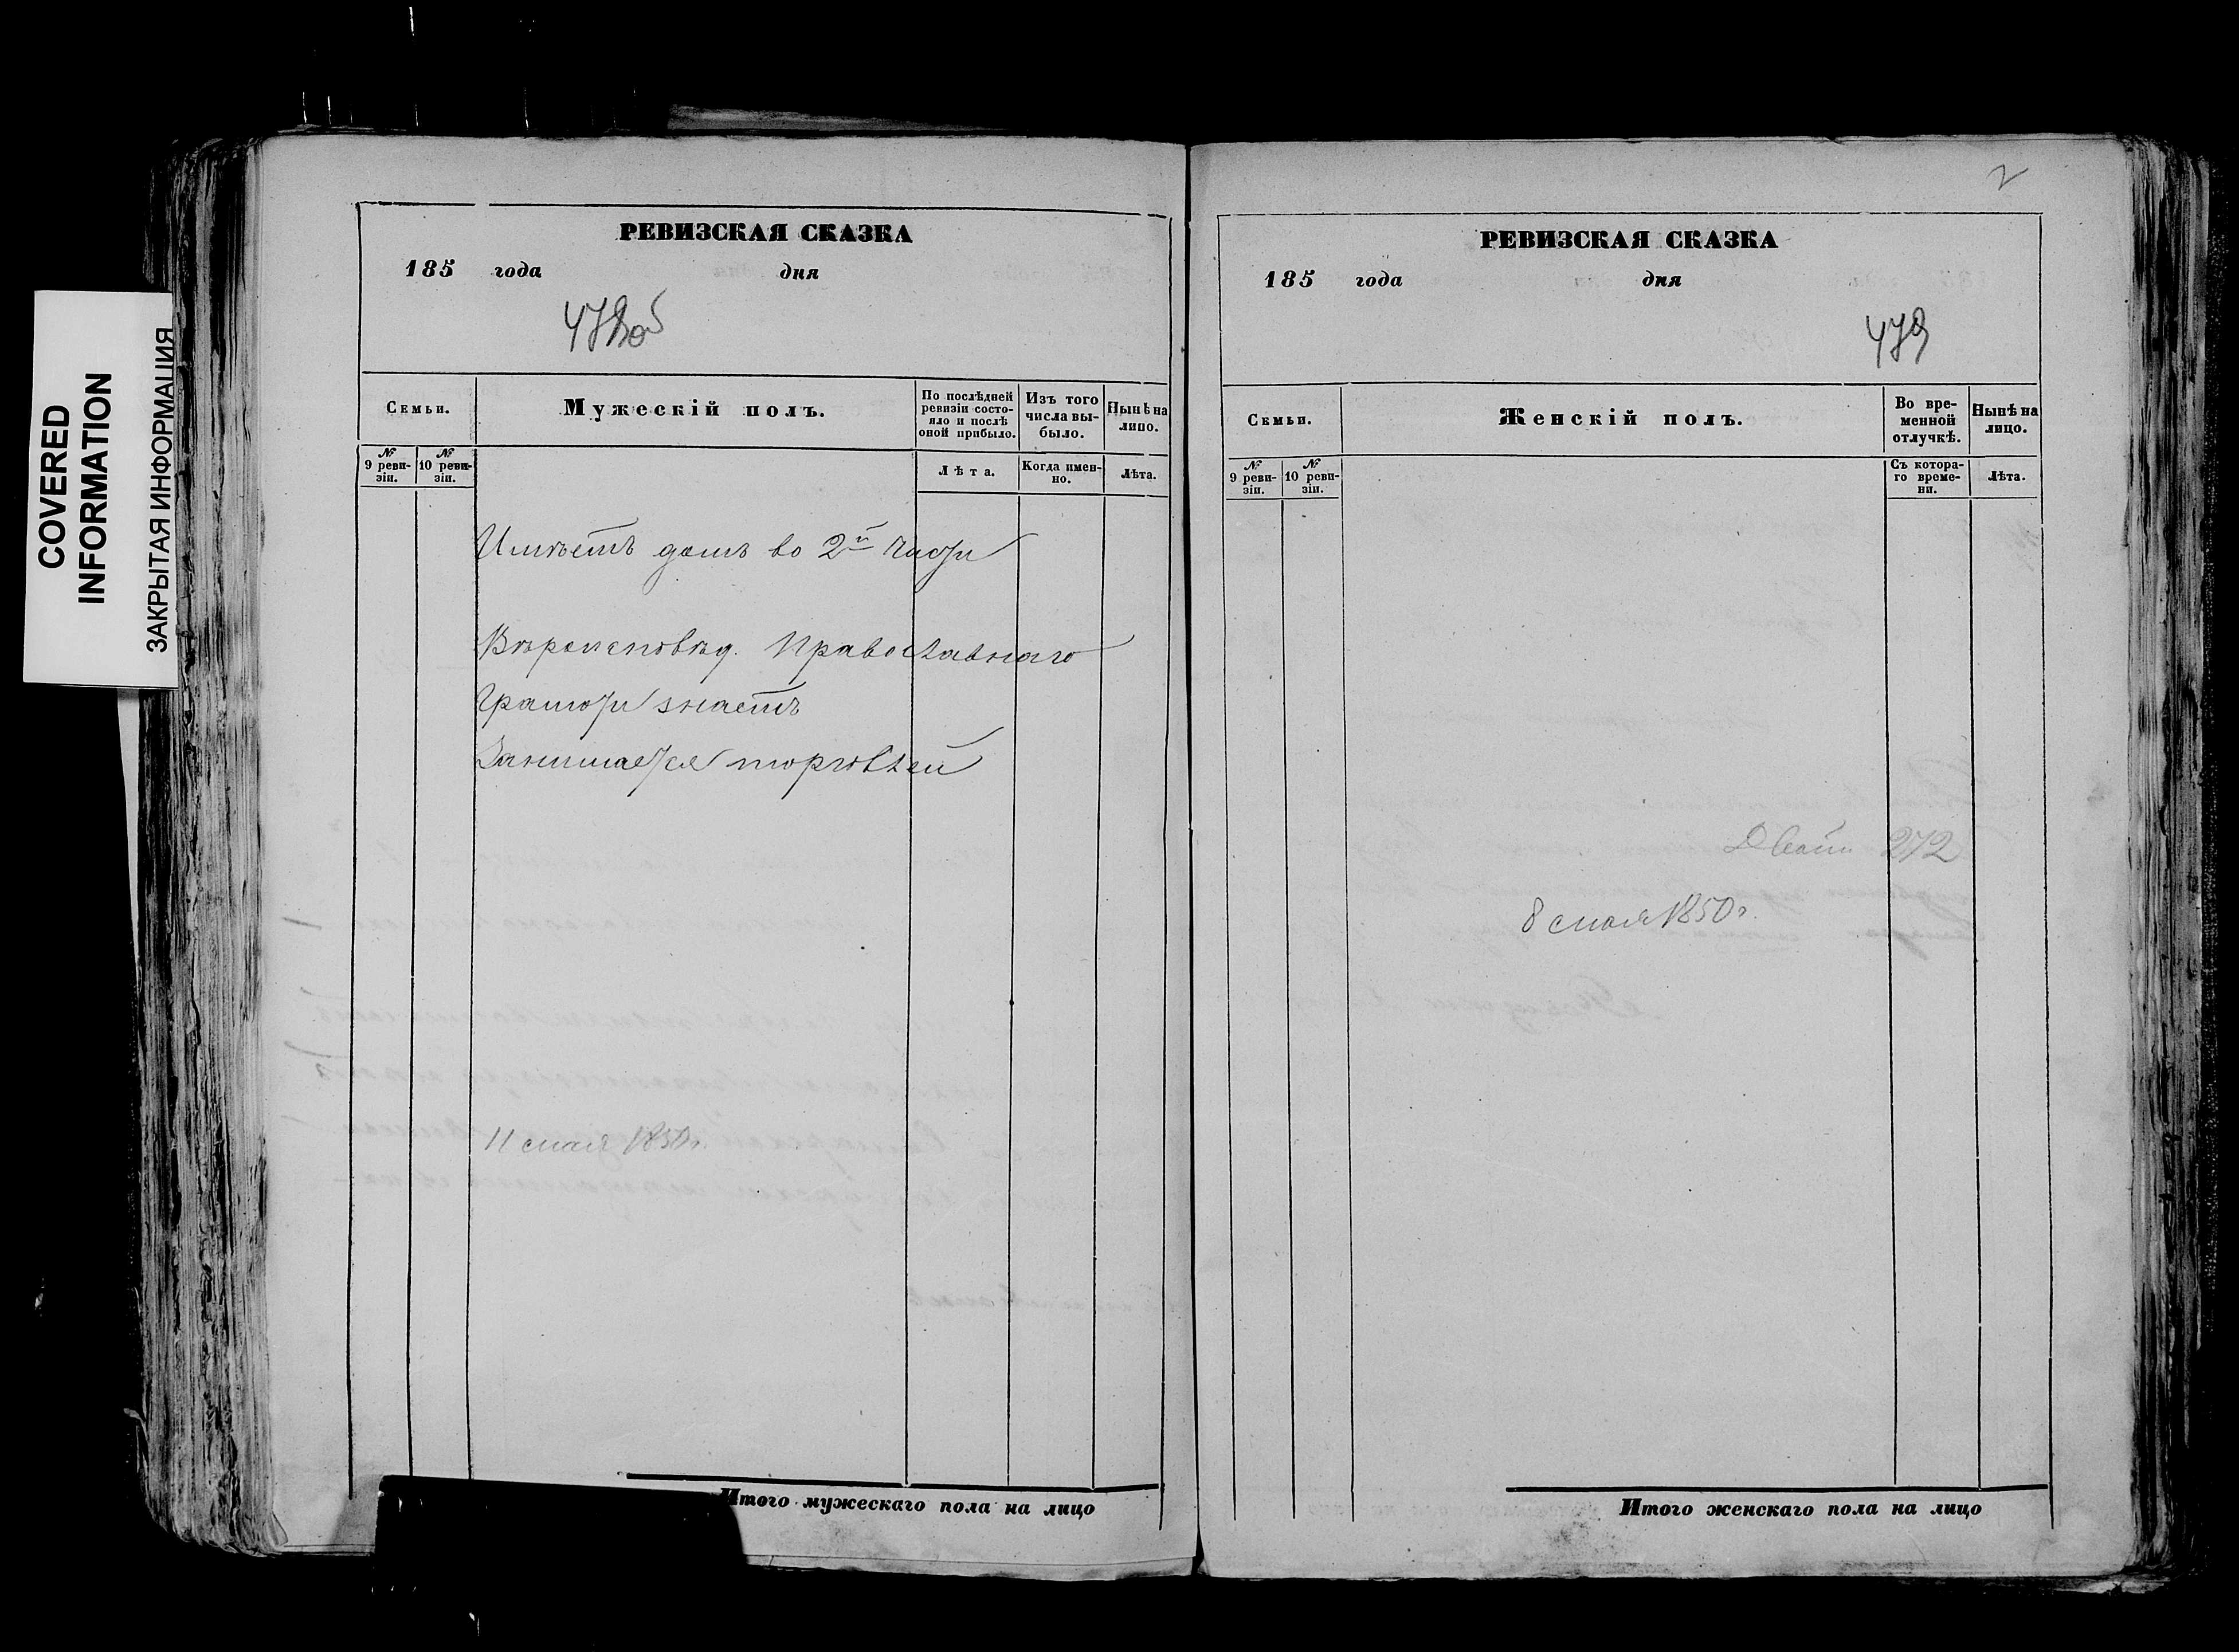 COVERED
INFORMATION
ЗАКРЫТАЯ ИНФОРМАЦИЯ
РЕВИЗСКАЯ СКАЗКА
185 года дня
478об
Семьи.
Мужескій полъ.
По послѣдней ревизіи состояло и послѣ оной прибыло.
Изъ того числа выбыло.
Нынѣ на лицо.
№ 9 ревизіи.
№ 10 ревизіи.
Лѣта.
Когда именно.
Лѣта.
Имѣетъ домъ во 2й части
Вѣроисповѣд. Православнаго
Грамоти знаетъ
Занимается торговлей
11 мая 1850 г.
Итого мужескаго пола на лицо
2
РЕВИЗСКАЯ СКАЗКА
185 года дня
479
Семьи.
Женскій полъ.
Во временной отлучкѣ.
Нынѣ на лицо.
№ 9 ревизіи.
№ 10 ревизіи.
Съ котораго времени.
Лѣта.
272
8 мая 1850 г.
Итого женскаго пола на лицо